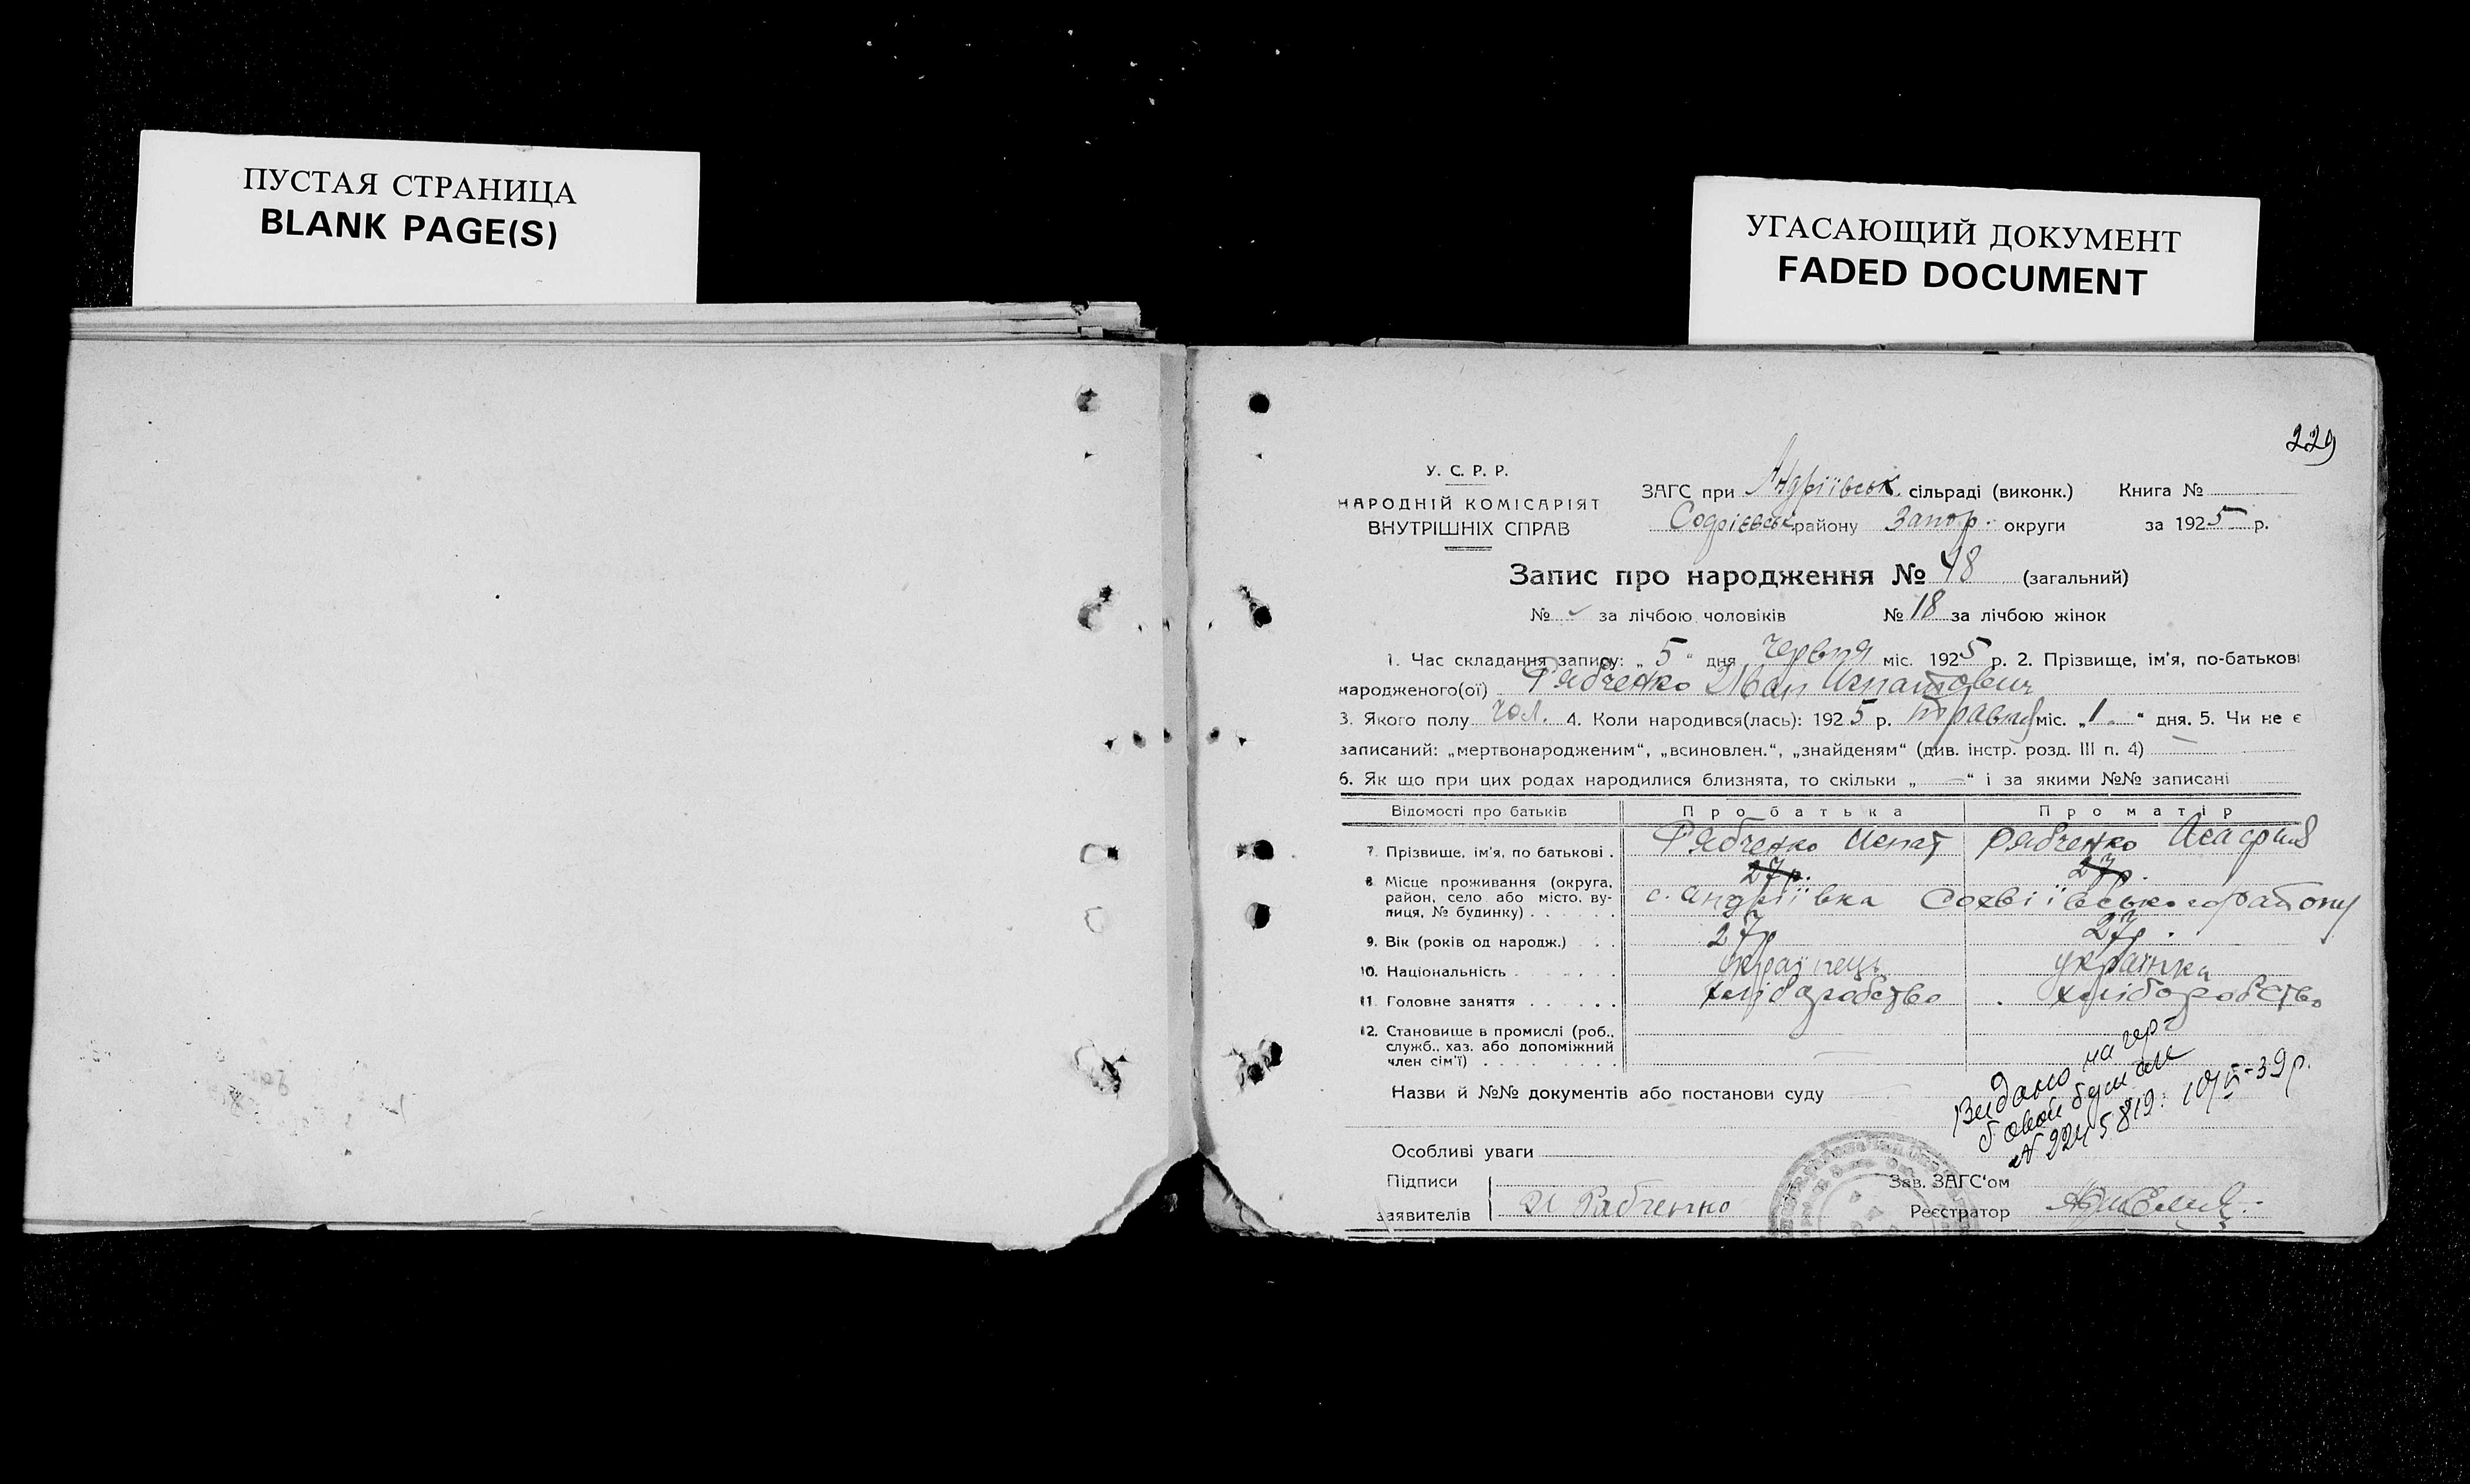 ПУСТАЯ СТРАНИЦА
BLANK PAGE(S)
УГАСАЮЩИЙ ДОКУМЕНТ
FADED DOCUMENT
229
У. С. Р. Р.
НАРОДНІЙ КОМІСАРІЯТ
ВНУТРІШНІХ СПРАВ
ЗАГС при Андріївськ. сільраді (виконк.) Книга №
району Запор. округи за 1925 р.
Запис про народження № 48 (загальний)
№ за лічбою чоловіків № 18 за лічбою жінок
1. Час складання запису: „ 5 “ дня червня міс. 1925 р. 2. Прізвище, ім'я, по-батькові
народженого(ої) Рябченко Иван Ипатович
3. Якого полу чол. 4. Коли народився(лась): 1925 р. травня міс. „1“ дня. 5. Чи не є
записаний: „мертвонародженим“, „всиновлен.“, „знайденям“ (див. інстр. розд. III п. 4) —
6. Як що при цих родах народилися близнята, то скільки „ — “ і за якими №№ записані
Відомості про батьків Про батька Про матір
7. Прізвище, ім'я, по батькові . Рябченко Ипат Рябченко
27р. 27р.
8. Місце проживання (округа, район, село або місто, вулиця, № будинку) с. Андріївка Софіївського району
9. Вік (років од народж.) 27р 27р.
10. Національність українець українка
11. Головне заняття хліборобство хліборобство
12. Становище в промислі (роб.,
служб., хаз. або допоміжний
член сім'ї)
Назви й №№ документів або постанови суду
Видано на гер-
бовой бумаге
№ 2245819. 10/V-39р.
Особливі уваги
Підписи Зав. ЗАГС'ом
заявителів И Рябченко Реєстратор